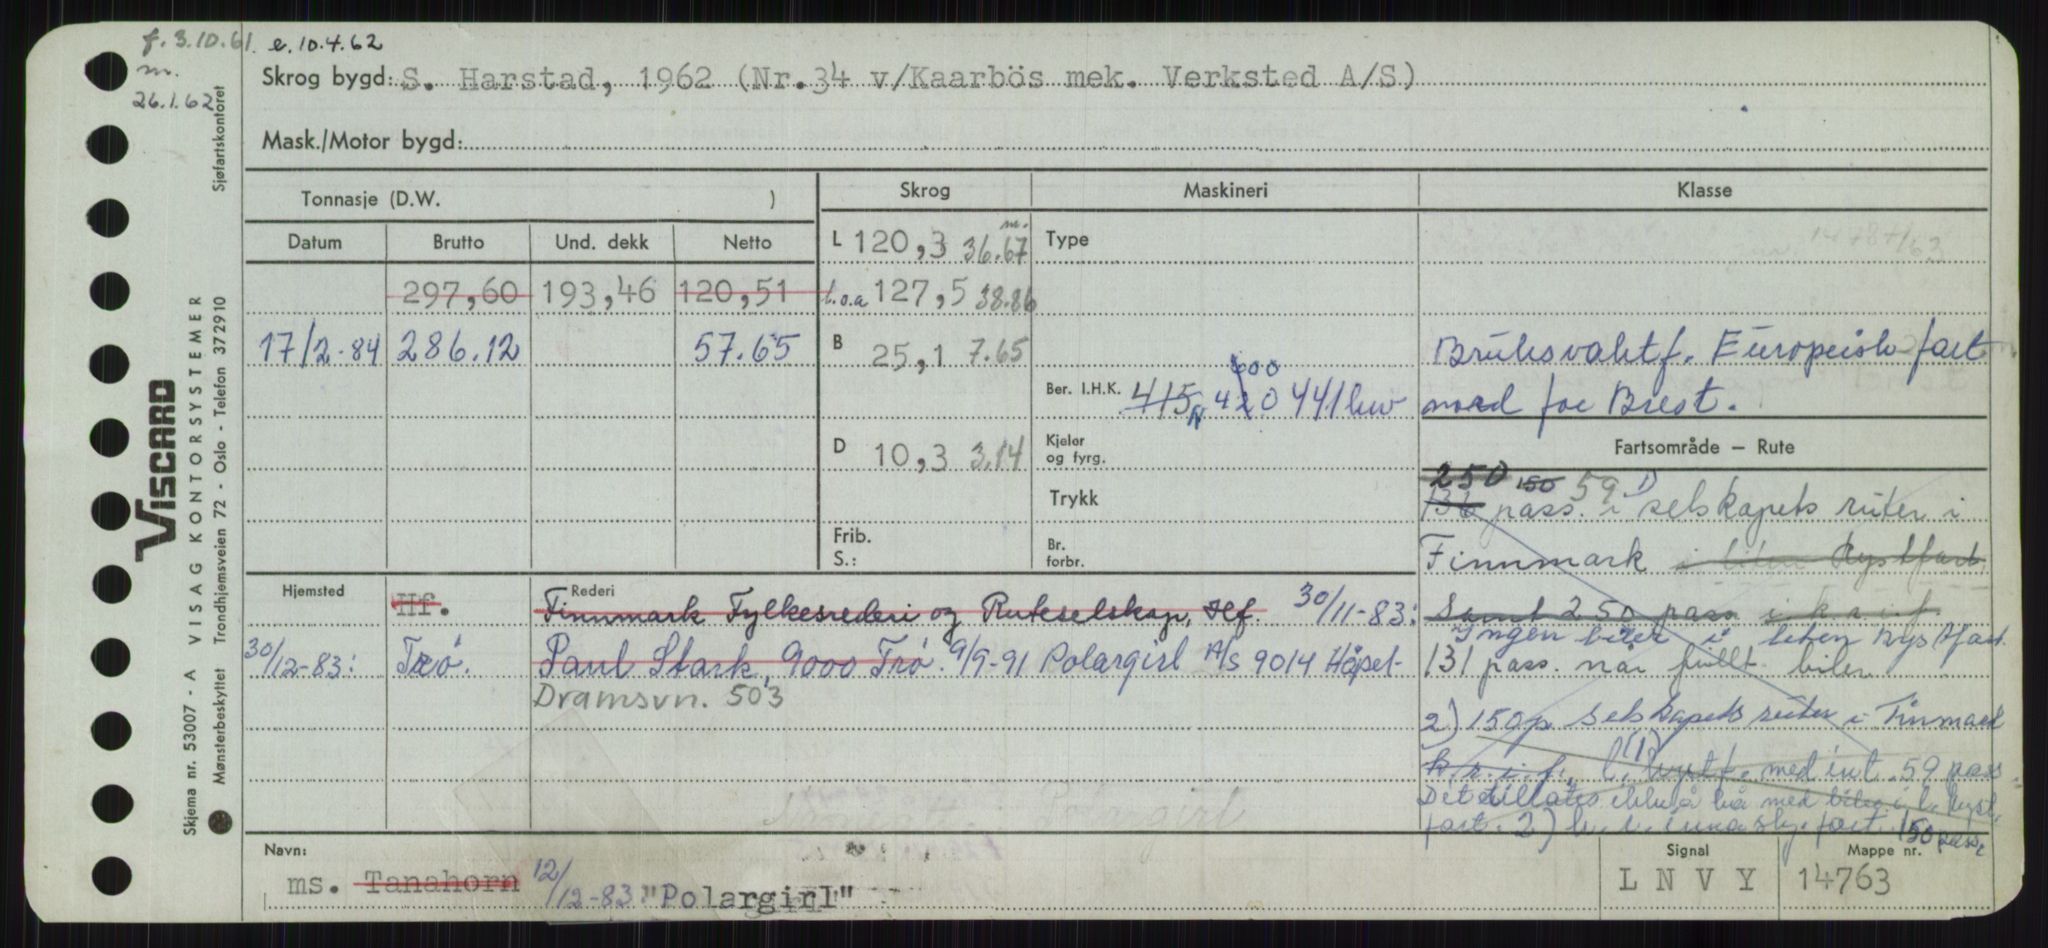 f. 3.10.61. e. 10.4.62
m.
26.1.62
Skrog bygd: S. Harstad, 1962 (Nr.34 v/Kaarbös mek. Verksted A/S)
Mask./Motor bygd:
Tonnasje (D.W. )
Skrog
Maskineri
Klasse
Datum Brutto Und. dekk Netto
L 120,3 36.67 m.
Type
297,60 193,46 120,51
l.o.a 127,5 38.86
17/2-84 286.12 57.65
B 25,1 7.65
Bruksvaktf. Europeisk fart
600
Ber. I.H.K. 415 420 441 kw
nord for Brest.
D 10,3 3.14
Kjeler og fyrg.
Fartsområde – Rute
250 150 59 1)
Trykk
131 pass. i selskapets ruter i
Frib.
S.:
Br. forbr.
Finnmark i liten kystfart
Hjemsted Hf.
Rederi
Finnmark Fylkesrederi og Ruteselskap, Hf. 30/11-83:
Samt 250 pass i k.r.i.f.
Ingen biler i liten kystfart
30/12-83: Trö. Paul Stark, 9000 Trö. 9/9-91 Polargirl A/S 9014 Håpet-
131 pass. når fullt biler
Dramsvn. 503
2) 150 p. selskapets ruter i Finmark
k.r.i.f., l. kystf. med int. 59 pass.
(1)
Det tillates ikke å ha med biler i l. kyst
fart. 2) 150 pass.
Polargirl
Navn:
ms. Tanahorn 12/12-83: "Polargirl"
Signal
L N V Y
Mappe nr.
14763
VISCARD
Skjema nr. 53007 - A VISAG KONTORSYSTEMER
Mønsterbeskyttet Trondhjemsveien 72 - Oslo - Telefon 372910 Sjøfartskontoret